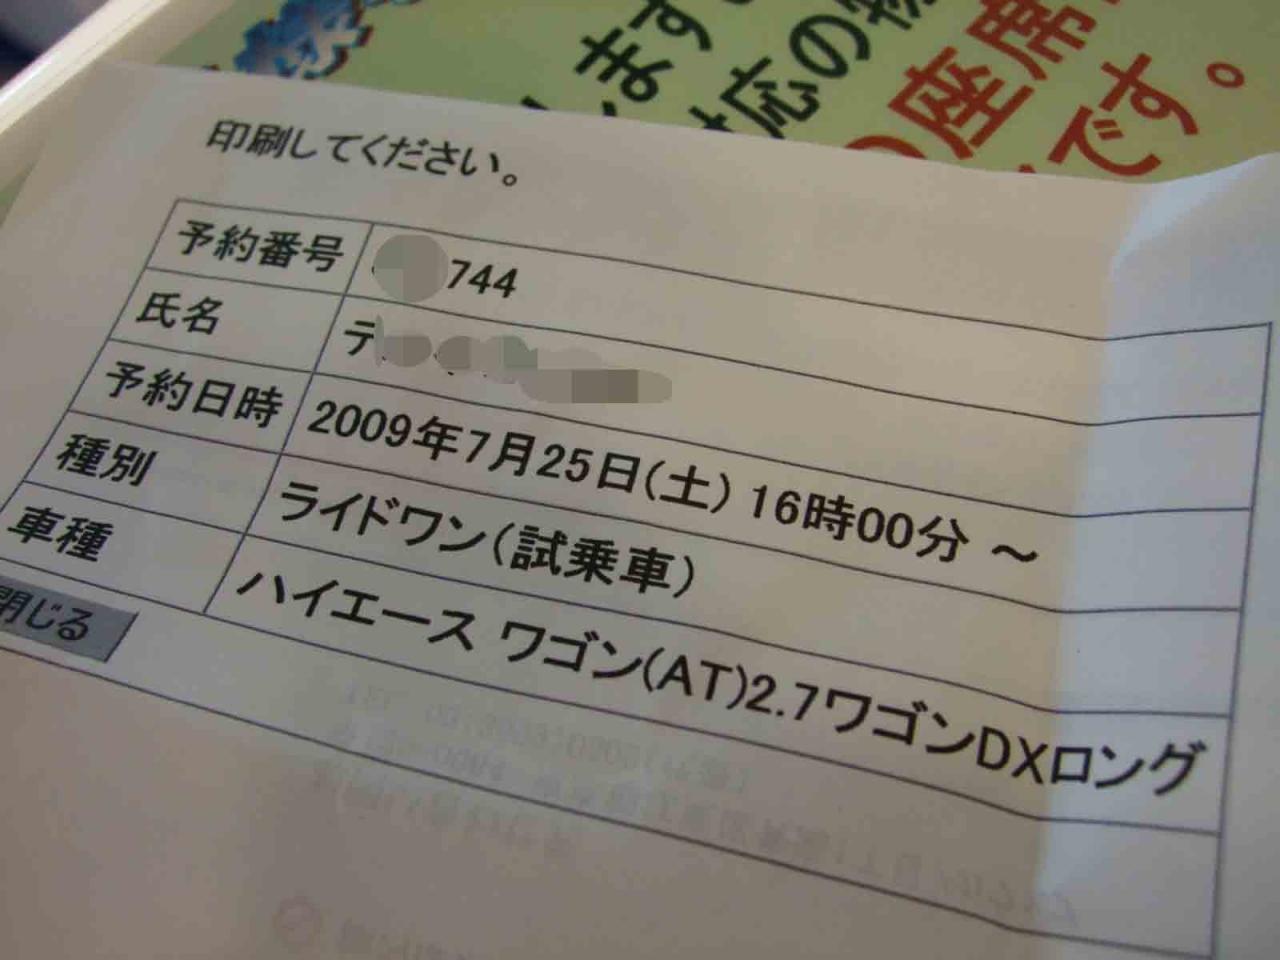 ます
対応の物
の座席
です。
印刷してください。
予約番号 744
氏名 デ
予約日時 2009年7月25日(土) 16時00分 ～
種別 ライドワン(試乗車)
車種 ハイエース ワゴン(AT)2.7ワゴンDXロング
閉じる